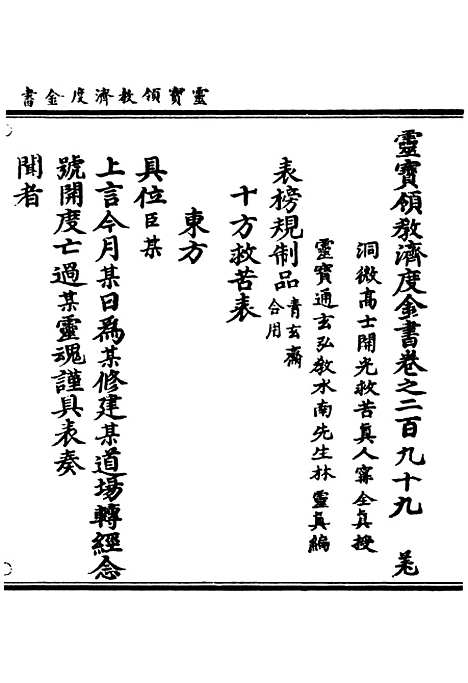 靈寶領教濟度金書
靈寶領教濟度金書卷之二百九十九
洞微高士開光救苦真人甯全真授
靈寶通玄弘教水南先生林靈真編
表榜規制品青玄齋合用
十方救苦表
東方
具位臣某
上言今月某日為某修建某道場轉經念
號開度亡過某靈魂謹具表奏
聞者